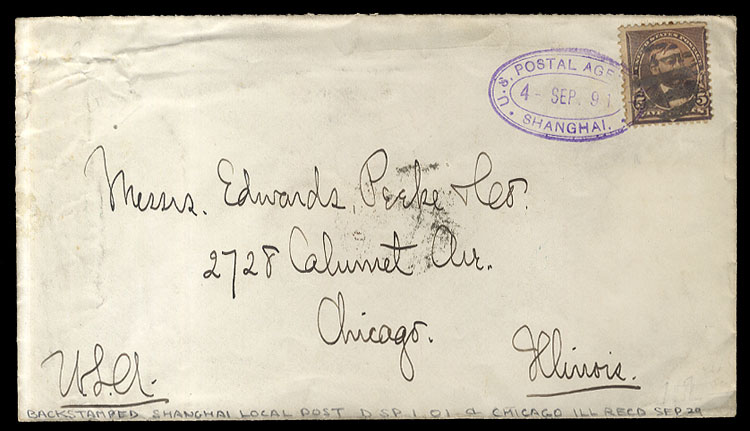 U.S. POSTAL AGE
4 - SEP. 91
SHANGHAI.
5
Messrs. Edwards, Peeke & Co.
2728 Calumet Av.
Chicago.
Illinois.
U.S.A.
BACKSTAMPED SHANGHAI LOCAL POST CHICAGO ILL RECD SEP 29